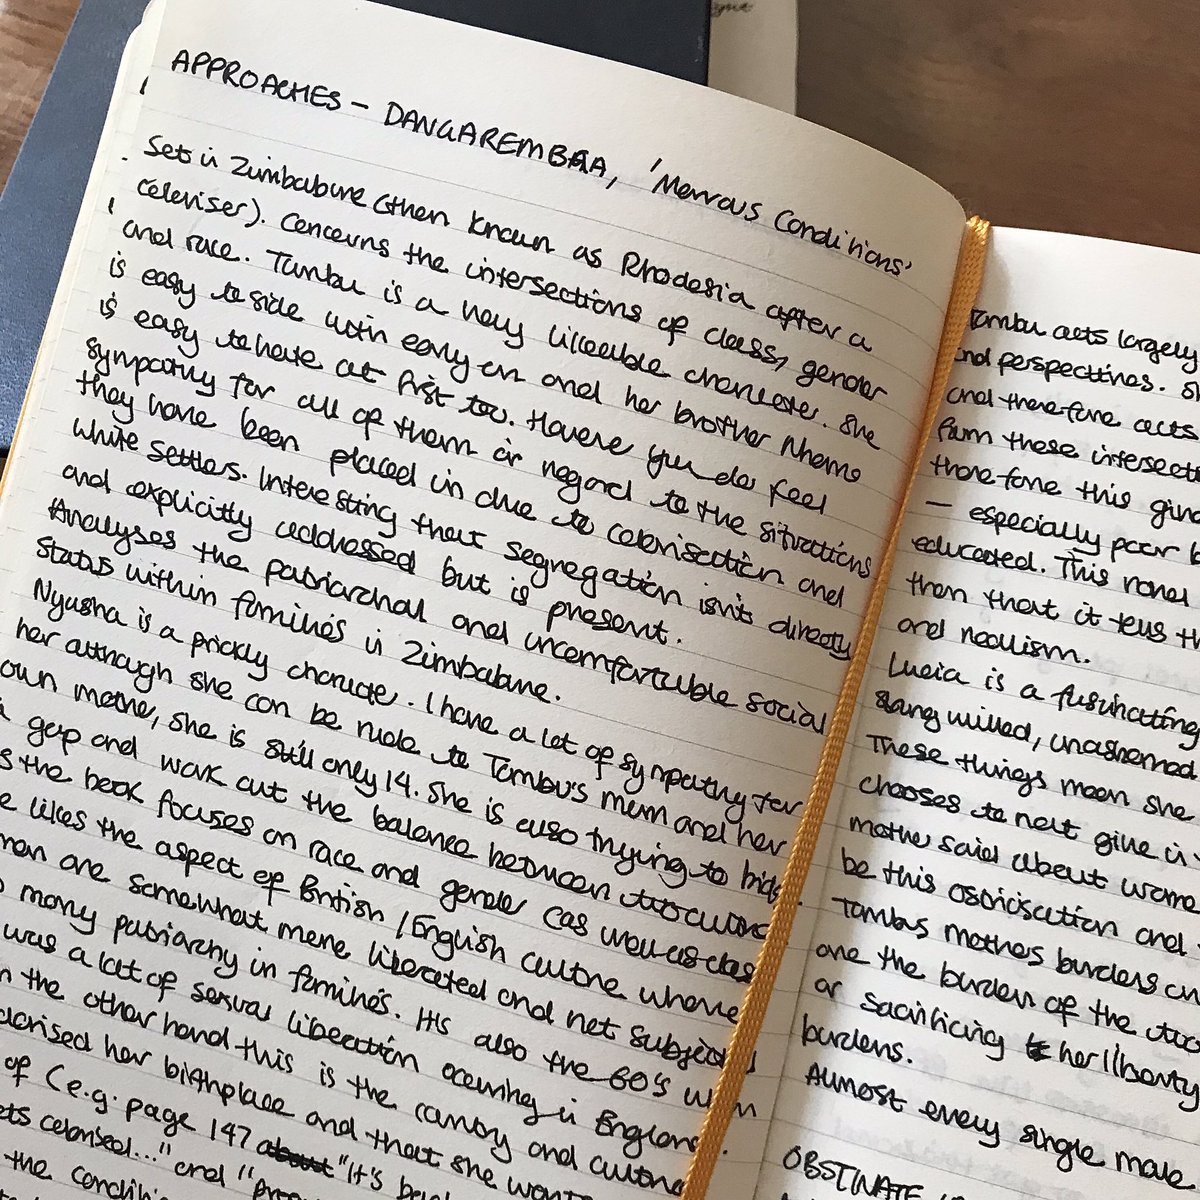 APPROACHES - DANGAREMBGA, 'Nervous Conditions'
Set in Zimbabwe (then known as Rhodesia after a
coloniser). Concerns the intersections of class, gender
and race. Tambu is a very likeable character. She
is easy to side with early on and her brother Nhamo
is easy to hate at first too. However you do feel
sympathy for all of them in regard to the situations
they have been placed in due to colonisation and
white settlers. Interesting that segregation isn't directly
and explicitly addressed but is present.
Analyses the patriarchal and uncomfortable social
status within families in Zimbabwe.
Nyasha is a prickly character. I have a lot of sympathy for
her although she can be rude to Tambu's mum and her
own mother, she is still only 14. She is also trying to
gap and work out the balance between two cultures
the book focuses on race and gender (as well as class
likes the aspect of British/English culture where
are somewhat more liberated and not subjected
many patriarchy in families. It's also the 60's
was a lot of sexual liberation occurring in England.
the other hand this is the country and culture
her birthplace and that she
of (e.g. page 147 about "It's
colonised..." and "
the
Tambu acts largely
and perspectives.
and therefore acts
from these
therefore this
— especially poor
educated. This novel
them that it tells
and realism.
Lucia is a fascinating
strong willed, unashamed
These things mean she
chooses to not give in
mother said about
be this ostricisation and
Tambus mothers burdens
are the burden of the
or sacrificing to her liberty
burdens.
Almost every single male
OBSTINATE